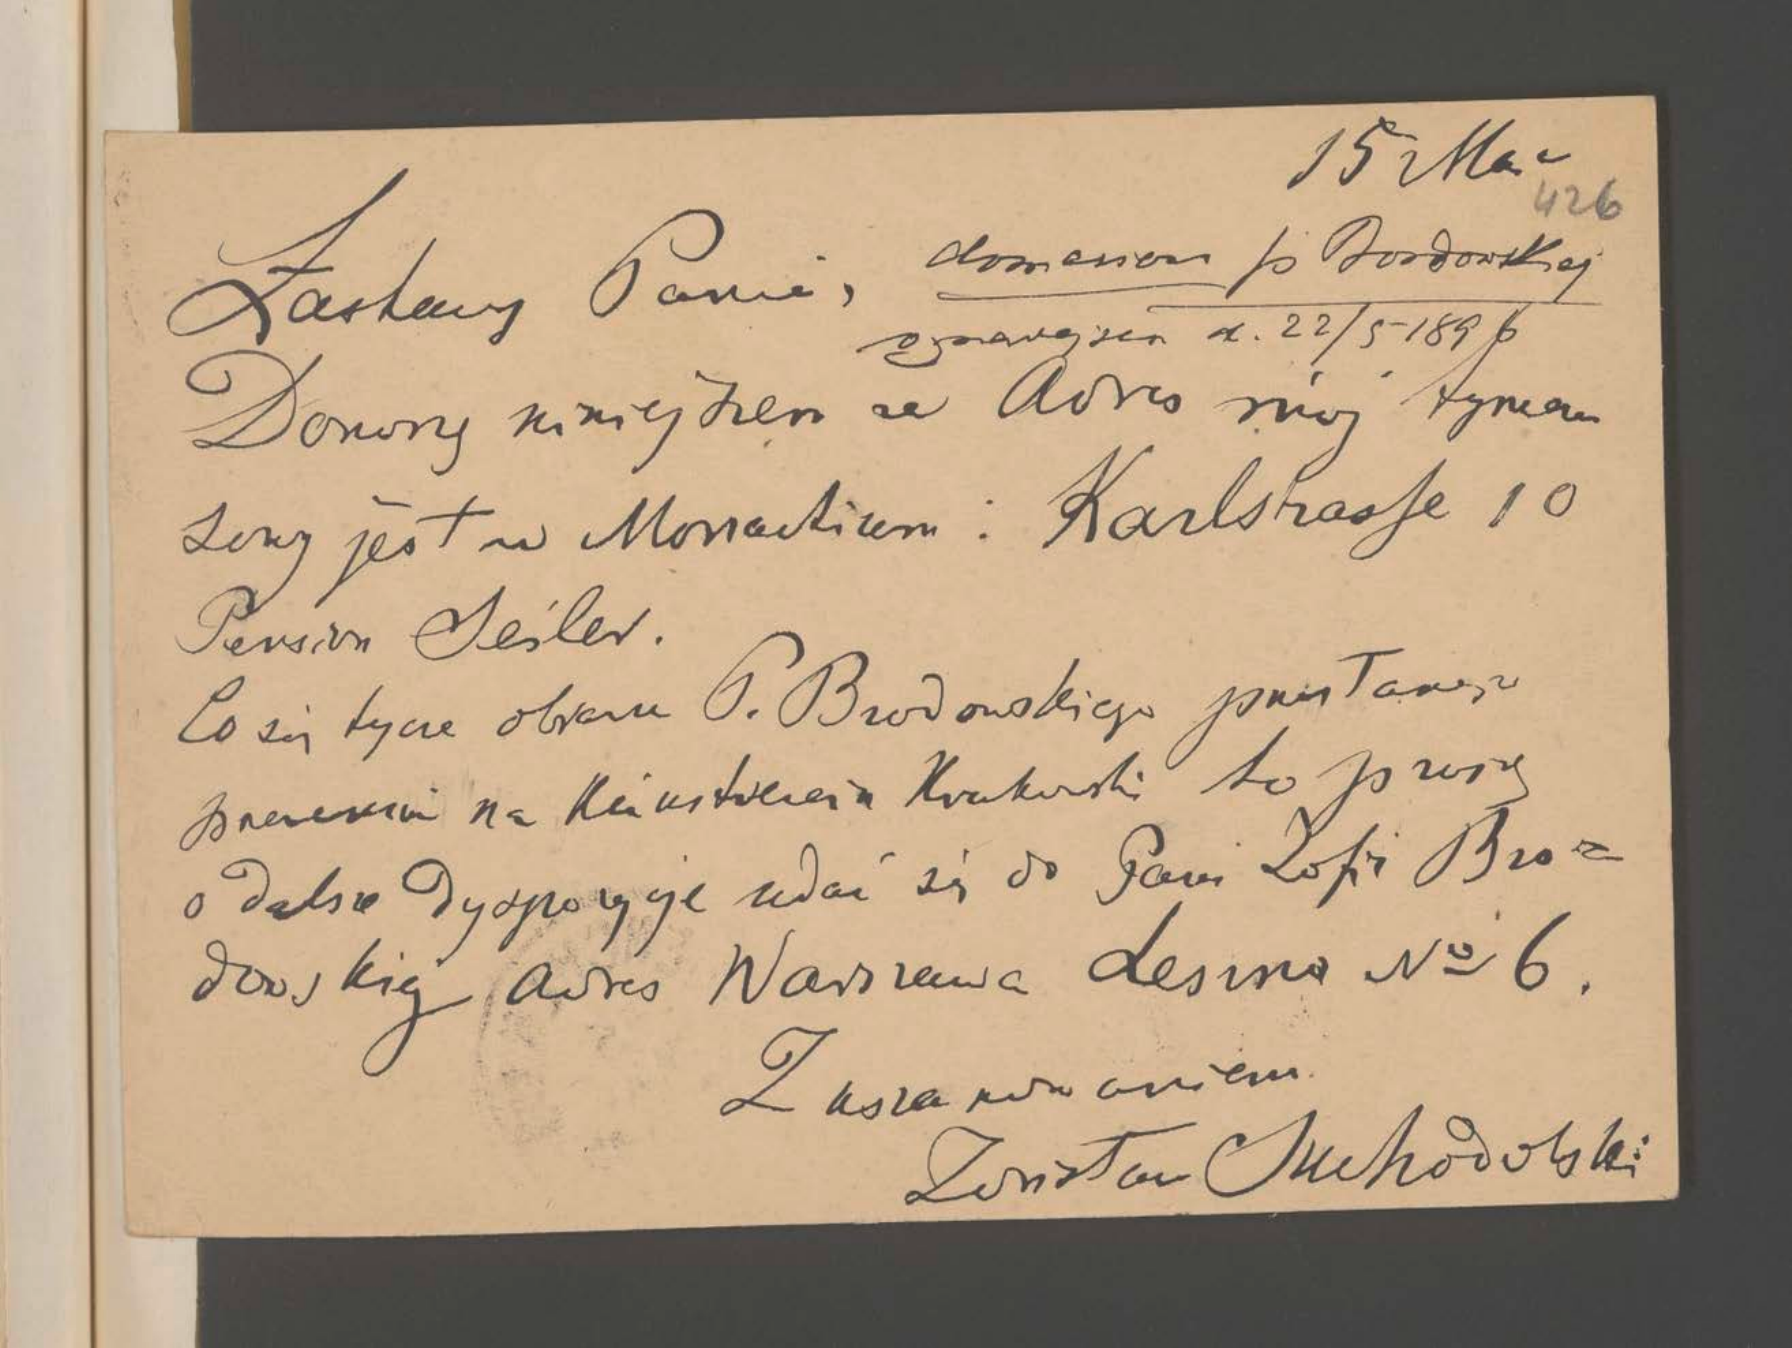 15 Mai
426
Łaskawy Panie, doniesiono p Brodowskiej
d. 22/5 1896
Donoszę niniejszem że Adres mój tymcza
sowy jest w Monachium : Karlstrasse 10
Pension Seiler.
Co się tycze obrazu P. Brodowskiego
na Kunstverein Krakowski to proszę
o dalsze dyspozycje udać się do Pani Zofii Bro=
dowskiej adres Warszawa Leszno No 6.
Z uszanowaniem
Zdzisław Suchodolski